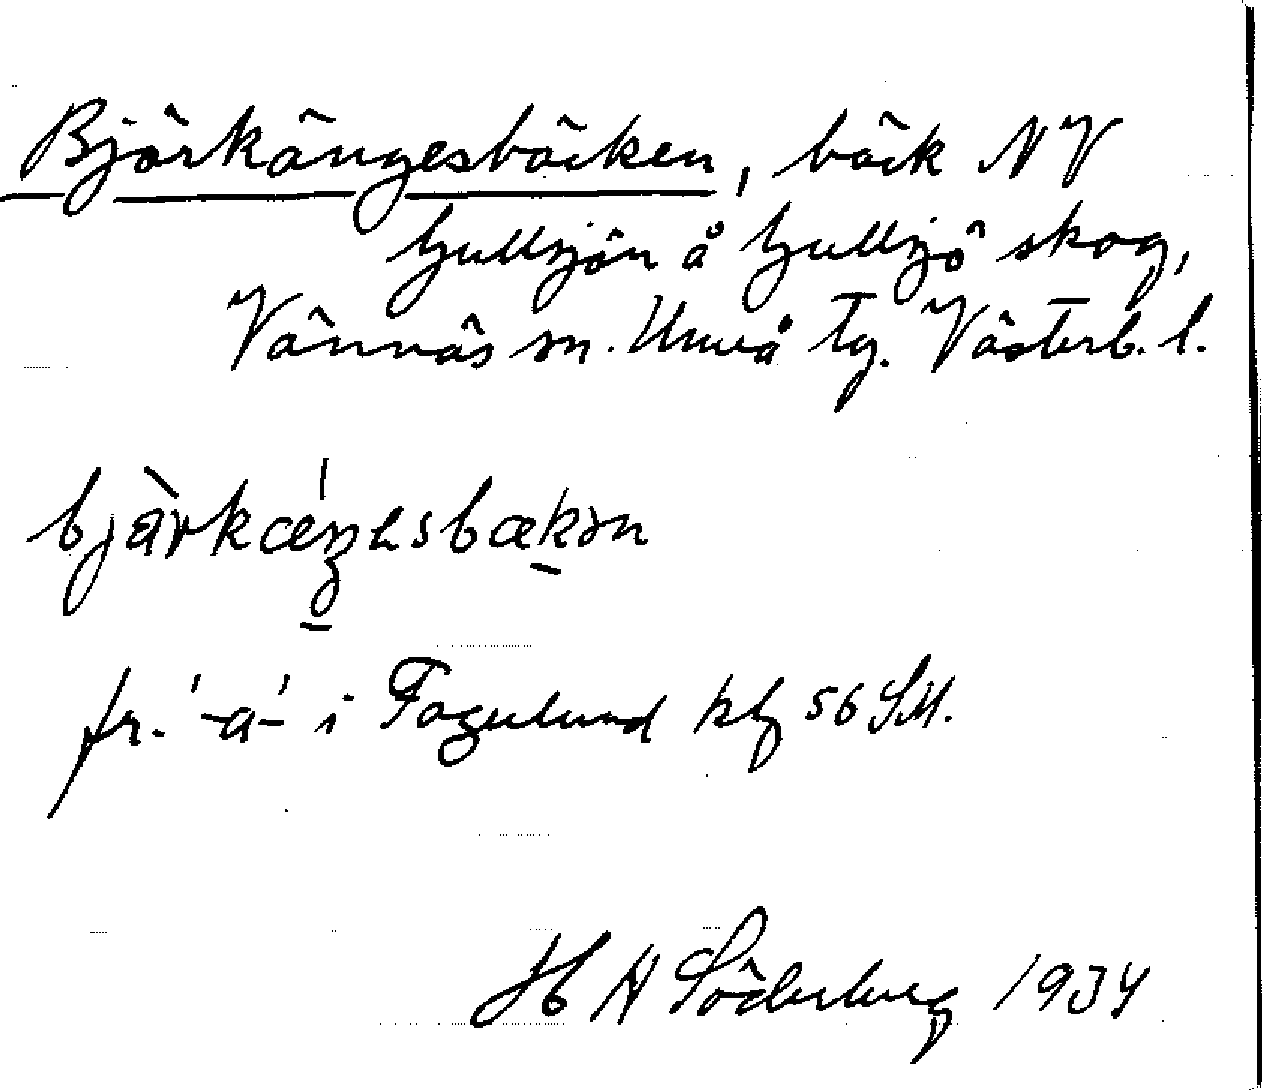 Björkängesbäcken, bäck NV
Gullsjön å Gullsjö skog,
Vännäs sn. Umeå tg. Västerb. l.
fr. -a- i Fagerlund kbl 56 SM.
H A Söderberg 1934